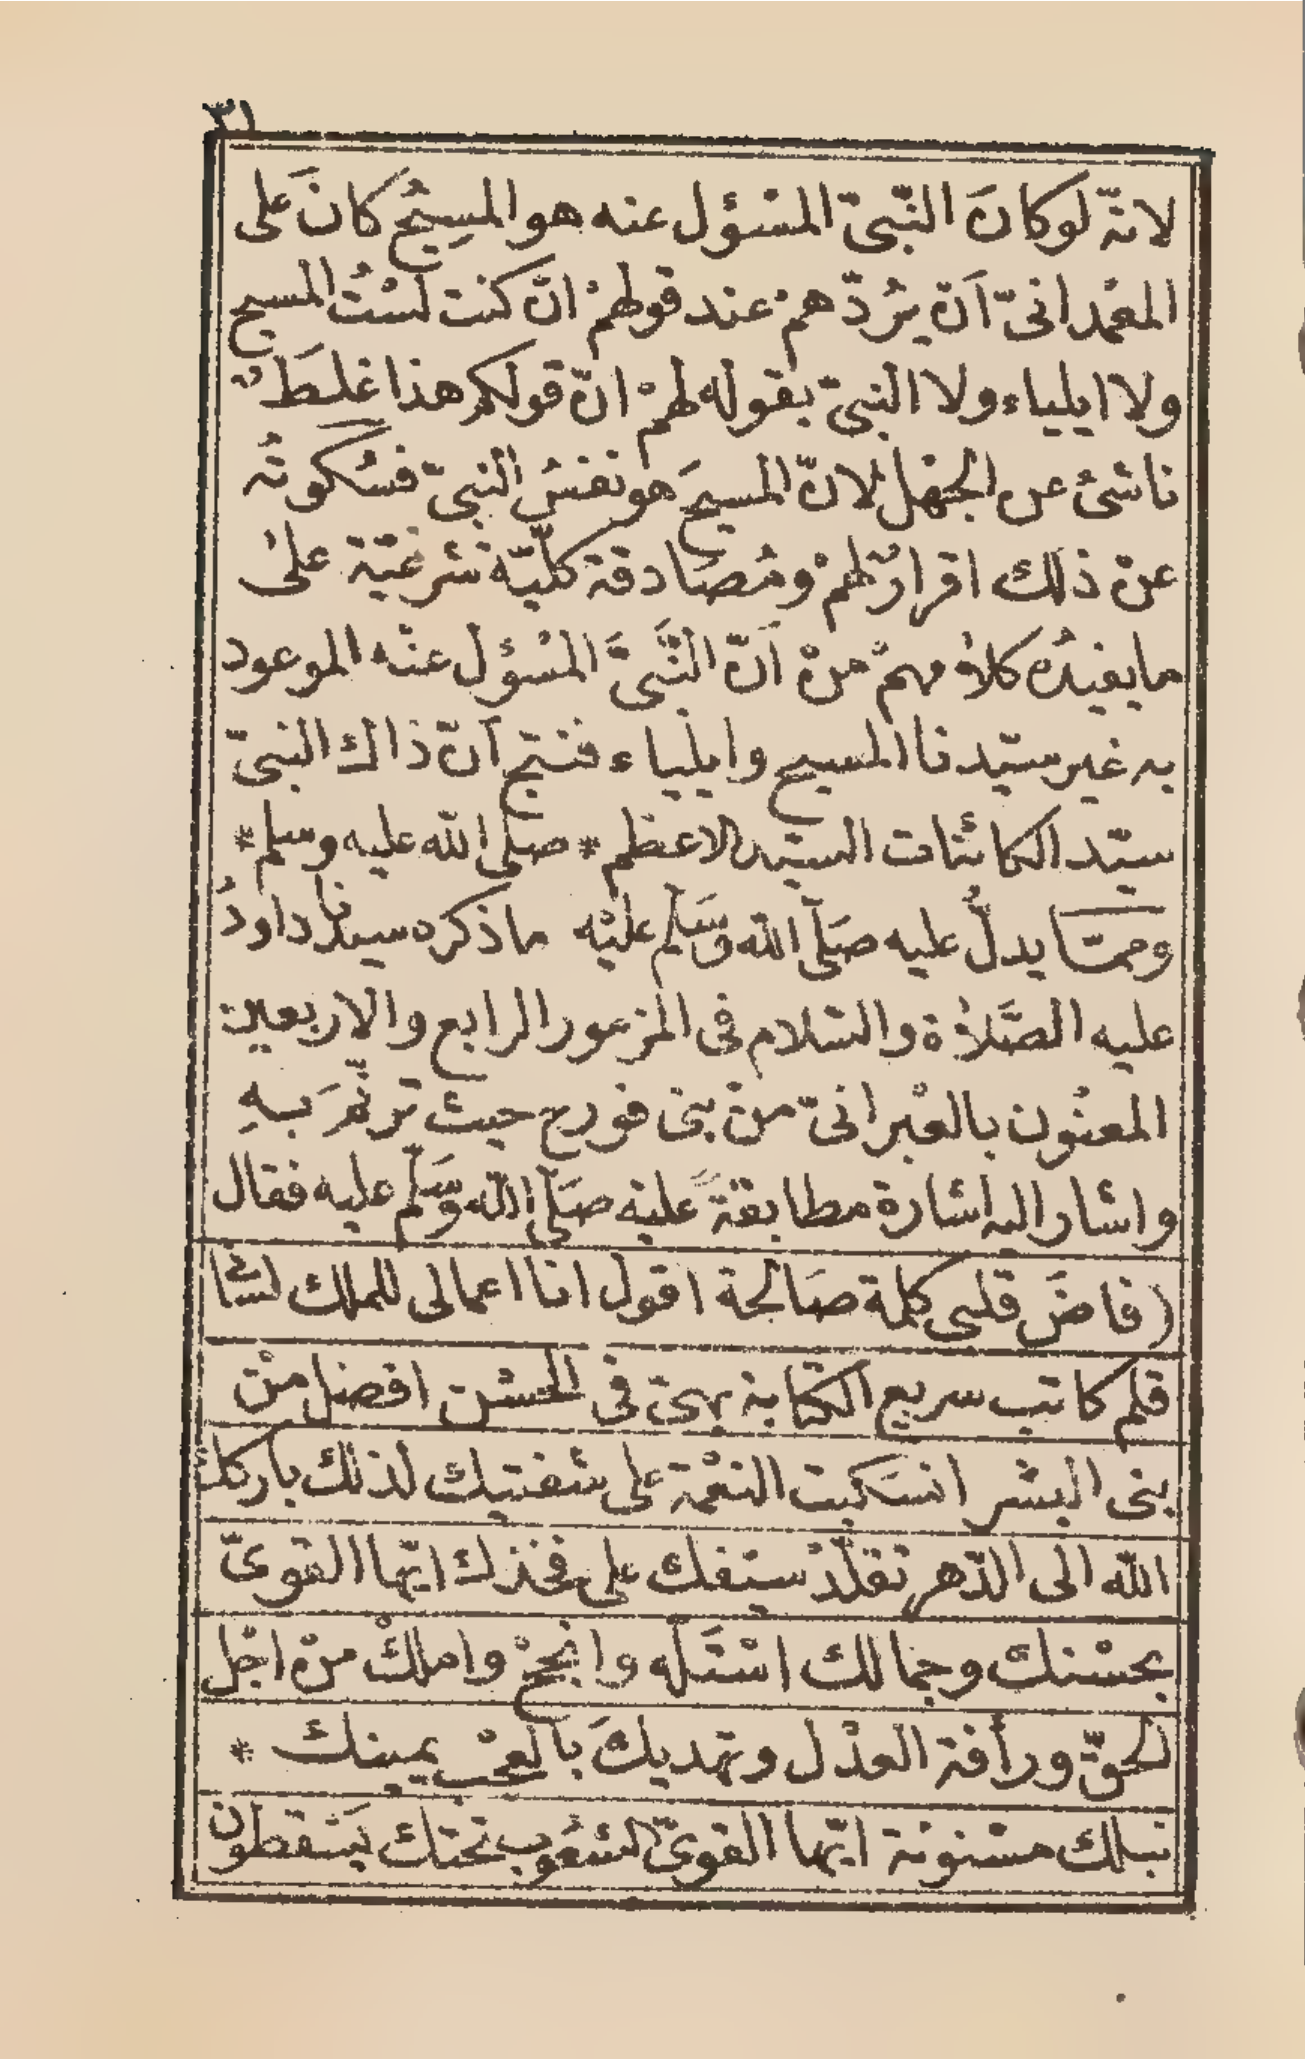 ٣١
لانّه لوكانَ النّبىّ المسْؤل عنه هو المسِيحُ كانَ عَلى
المعْمدانىّ اَنّ يرُدّهمْ عند قولهمْ انّ كنت لسْتُ المسيح
ولا ايلياء ولا النبىّ بقوله لهمْ انّ قولكم هذا غلَطٌ
ناشئ عن الجهْل لانّ المسيحَ هو نفسُ النبىّ فسُكوتُه
عنْ ذلك اقرارٌ لهمْ ومُصَادقة كلّيّة شرعيّة علىْ
ما يفيدُه كلامهمْ منْ اَنّ النَّبىَّ المسْؤل عنْه الموعود
به غير سيّدنا المسيح وايلياء فنتج اَنّ ذاك النبىّ
سيّد الكائنات السيّد الاعظم * صلى الله عليه وسلم *
وممّا يدلّ عليه صَلّى الله وَسَلم عليْه ماذكره سيدنا داودُ
عليه الصَّلاة والسّلام فى المزمور الرابع والاربعين
المعنُون بالعبْرانىّ منْ بنى قورح حيث ترنّمَ بهِ
واشار اليه اشارة مطابقةً عليْه صَلّى الله وَسَلّم عليه فقال
(فاضَ قلبى كلمة صَالحة اقول انا اعمالى للملك لسَانى
قلم كاتب سريع الكتابة بهىّ فى الحسْن افضل منْ
بنى البشر انسَكبت النعْمة على شفتيك لذلك باركك
الله الى الدّهر تقلّدْ سيْفك على فخذك ايّها القوىّ
بحسْنك وجمالك اسْتَله وانجحْ واملكْ منْ اجْل
الحقّ ورأفة العدْل وتهديكَ بالعجْب يمينك *
نبلك مسْنونة ايّها القوىّ الشعُوب تحتك يَسْقطون